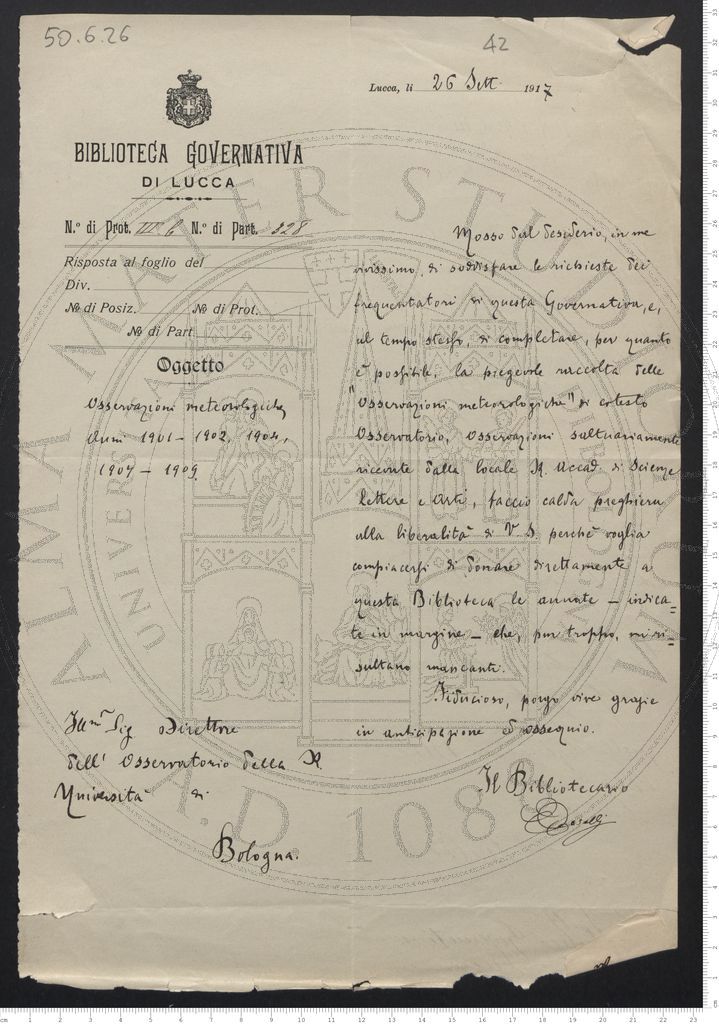 50.6.26
42
Lucca, li 26 Sett. 1917
BIBLIOTECA GOVERNATIVA
DI LUCCA
N.º di Prot. III. 6 N.º di Part. 328
Risposta al foglio del
Div.
Nº di Posiz. Nº di Prot.
Nº di Part.
Oggetto
Osservazioni meteorologiche
Anni 1901 - 1902, 1904,
1907 - 1909.
Mosso dal desiderio, in me
vivissimo, di soddisfare le richieste dei
frequentatori di questa Governativa, e,
al tempo stesso, di completare, per quanto
è possibile, la pregevole raccolta delle
"Osservazioni meteorologiche" di cotesto
Osservatorio, Osservazioni saltuariamente
ricevute dalla locale R. Accad. di Scienze
Lettere e Arti, faccio calda preghiera
alla liberalità di V. S. perchè voglia
compiacersi di donare direttamente a
questa Biblioteca le annate — indica=
te in margine — che, pur troppo, mi ri=
sultano mancanti.
Fiducioso, porgo vive grazie
in anticipazione ed ossequio.
Il Bibliotecario
Ill.mo Sig Direttore
dell' Osservatorio della R.
Università di
Bologna.
ALMA MATER STUDIORUM
A.D. 1088